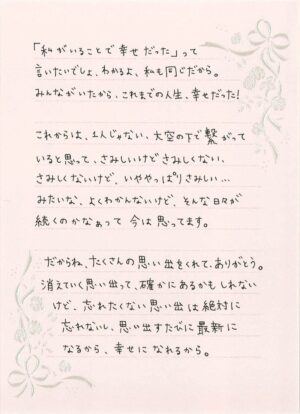 「私がいることで幸せだった」って
言いたいでしょ、わかるよ、私も同じだから。
みんながいたから、これまでの人生、幸せだった!
これからは、1人じゃない、大空の下で繋がって
いると思って、さみしいけどさみしくない、
さみしくないけど、いややっぱりさみしい…
みたいな、よくわかんないけど、そんな日々が
続くのかなぁって 今は思ってます。
だからね、たくさんの思い出をくれて、ありがとう。
消えていく思い出って、確かにあるかもしれない
けど、忘れたくない思い出は絶対に
忘れないし、思い出すたびに最新に
なるから、幸せになれるから。